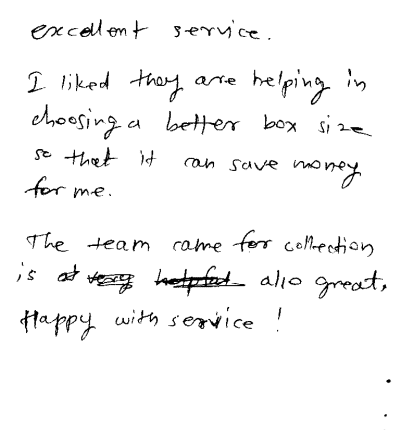 excellent service.
I liked they are helping in
choosing a better box size
so that it can save money
for me.
The team came for collection
is also great,
Happy with service !